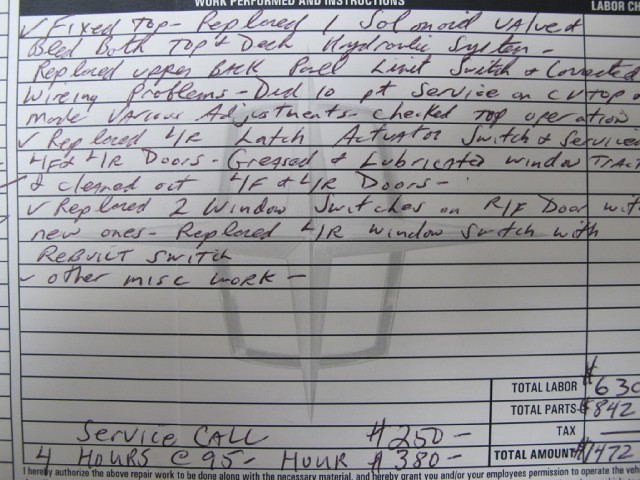 WORK PERFORMED AND INSTRUCTIONS
LABOR CH
✓ Fixed Top - Replaced 1 Solonoid VAlve &
Bled Both Top & Deck Hydraulic System -
Replaced upper BAck Panel Limit Switch & Corrected
Wireing Problems - Did 10 pt Service on CV TOP &
made Various Adjustments - checked Top operation
✓ Replaced L/R Latch Actuator Switch & Serviced
L/F & L/R Doors - Greased & Lubricated window TRAC
& cleaned out L/F & L/R Doors -
✓ Replaced 2 Window Switches on R/F Door with
new ones - Replaced L/R window switch with
REBuilt Switch
✓ other misc work -
TOTAL LABOR $630
TOTAL PARTS $842
TAX —
Service CALL $250 -
TOTAL AMOUNT $1472
4 HOURS @ 95 - HOUR $380 -
I hereby authorize the above repair work to be done along with the necessary material, and hereby grant you and/or your employees permission to operate the vehi